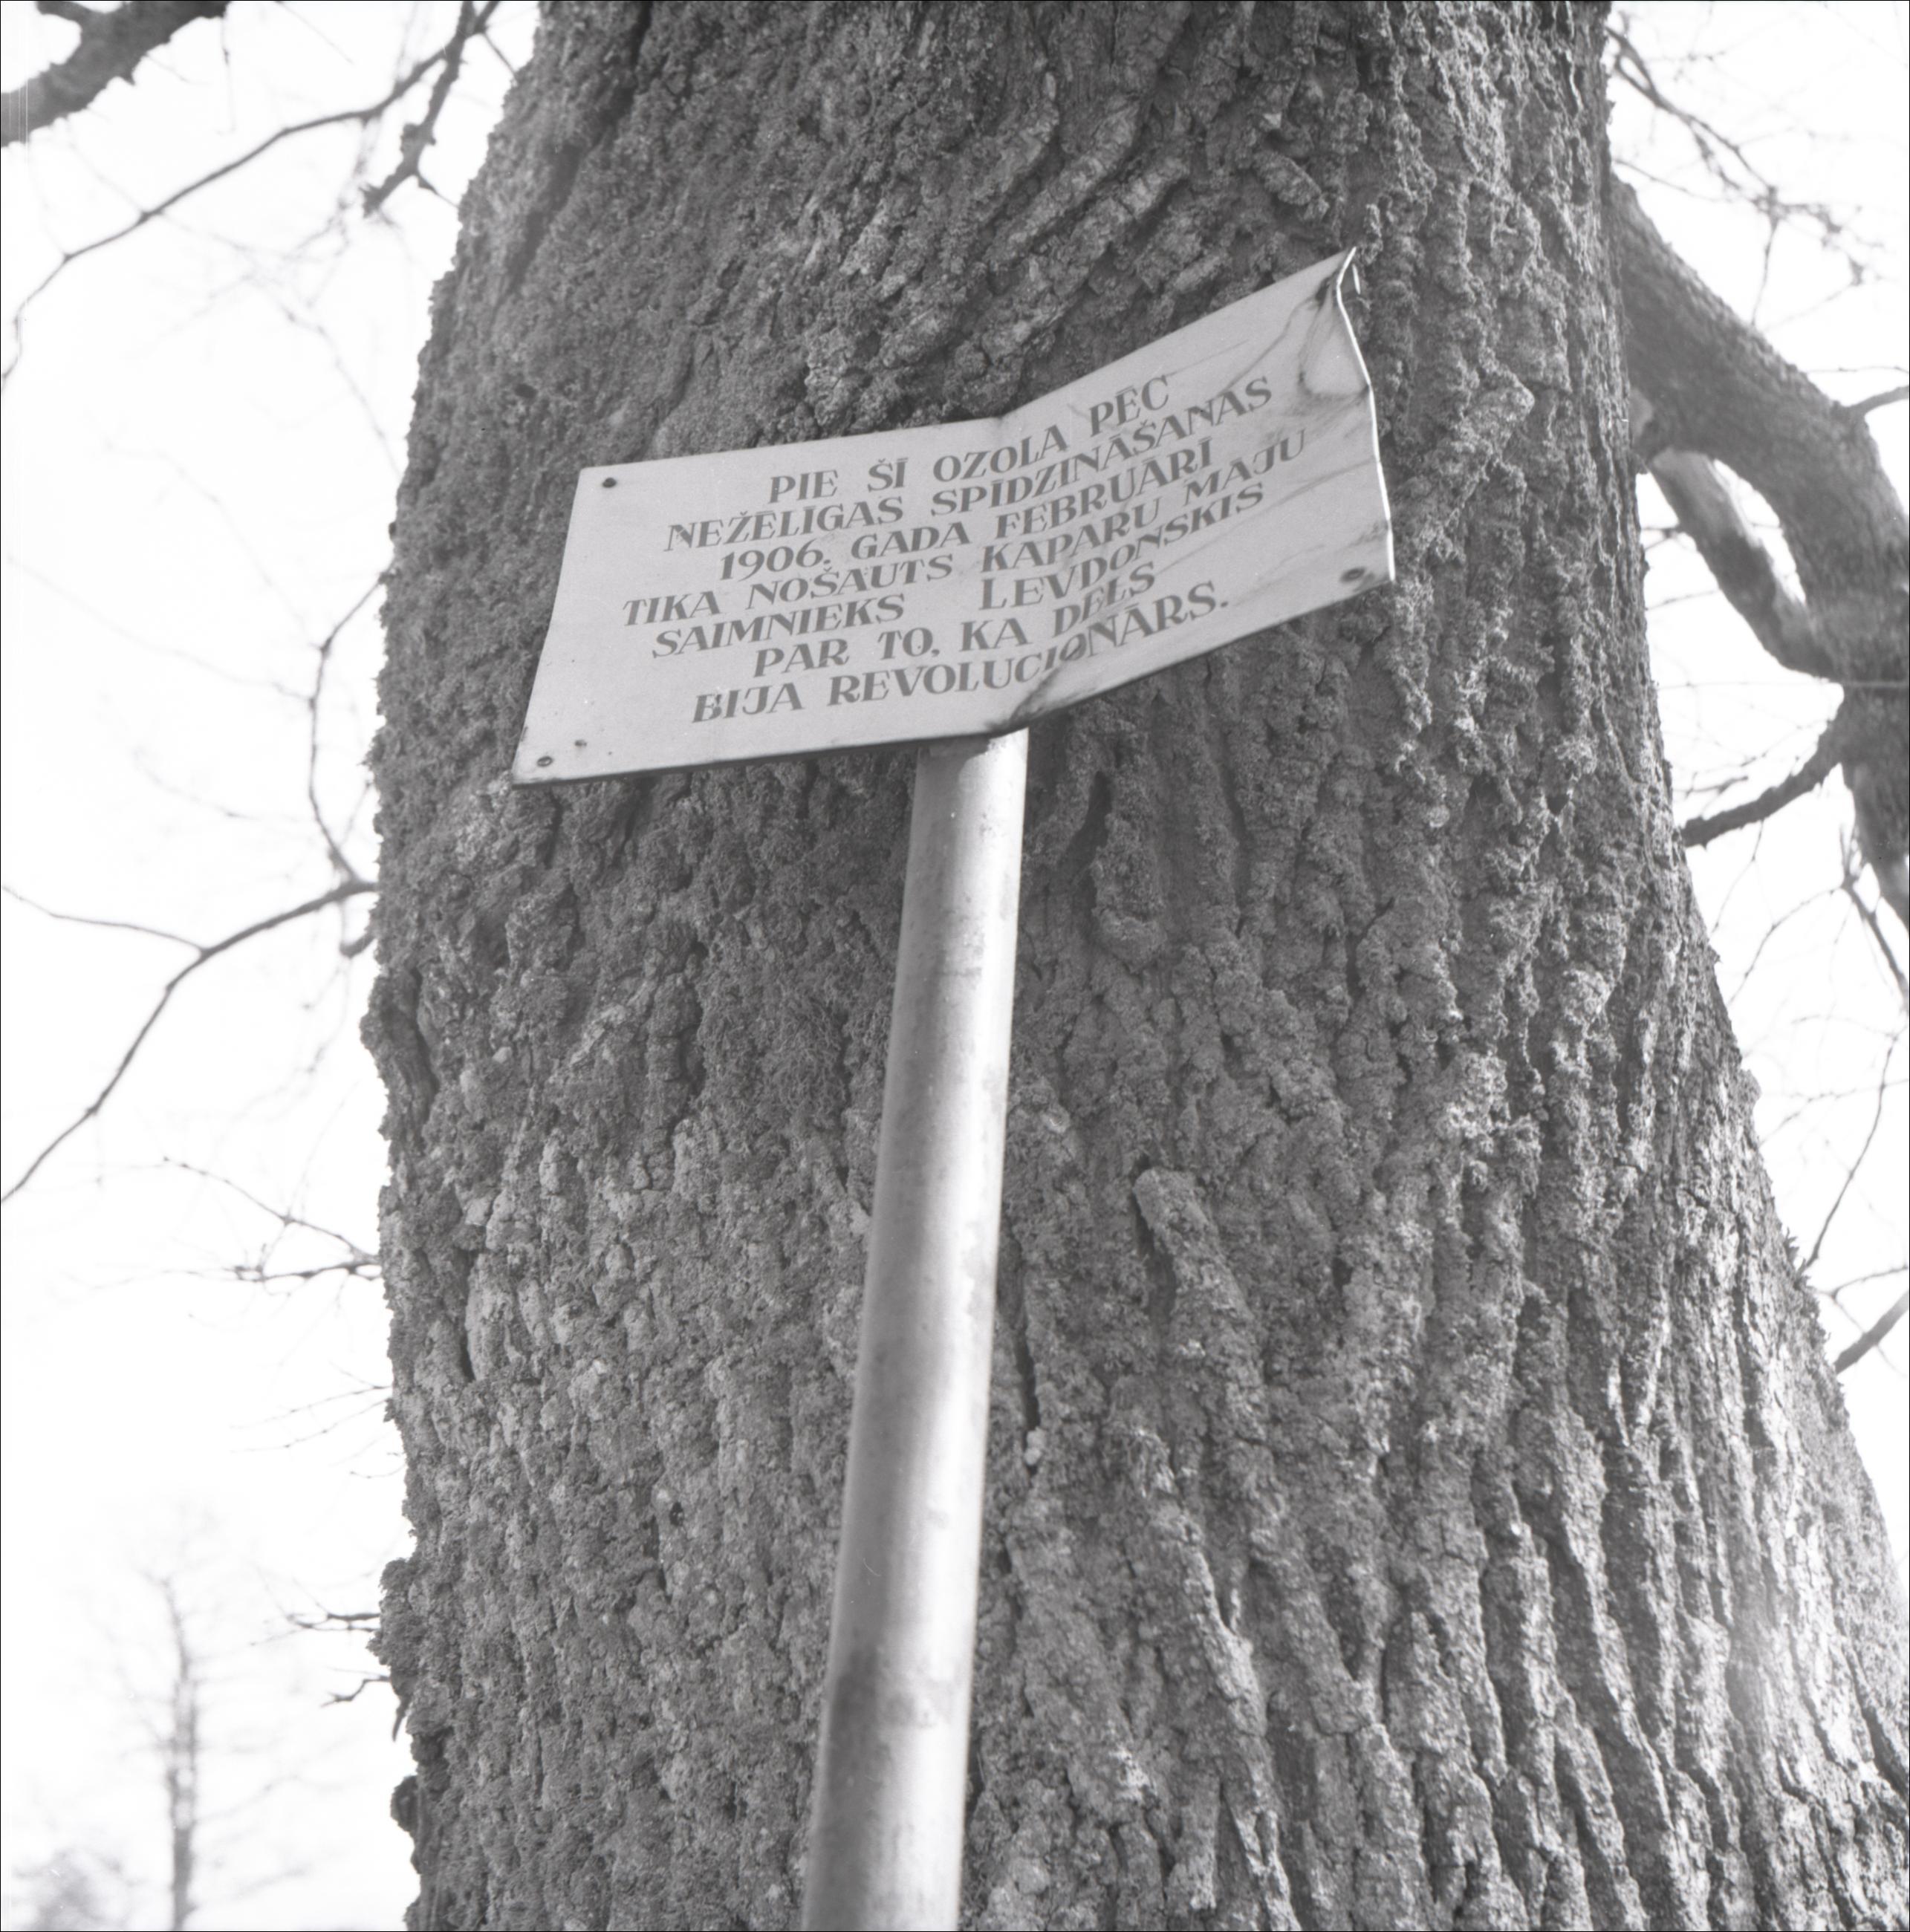 PIE ŠĪ OZOLA PĒC
NEŽĒLĪGAS SPĪDZINĀŠANAS
1906. GADA FEBRUĀRĪ
TIKA NOŠAUTS KAPARU MAJU
SAIMNIEKS LEVDONSKIS
PAR TO, KA DĒLS
BIJA REVOLUCIONĀRS.